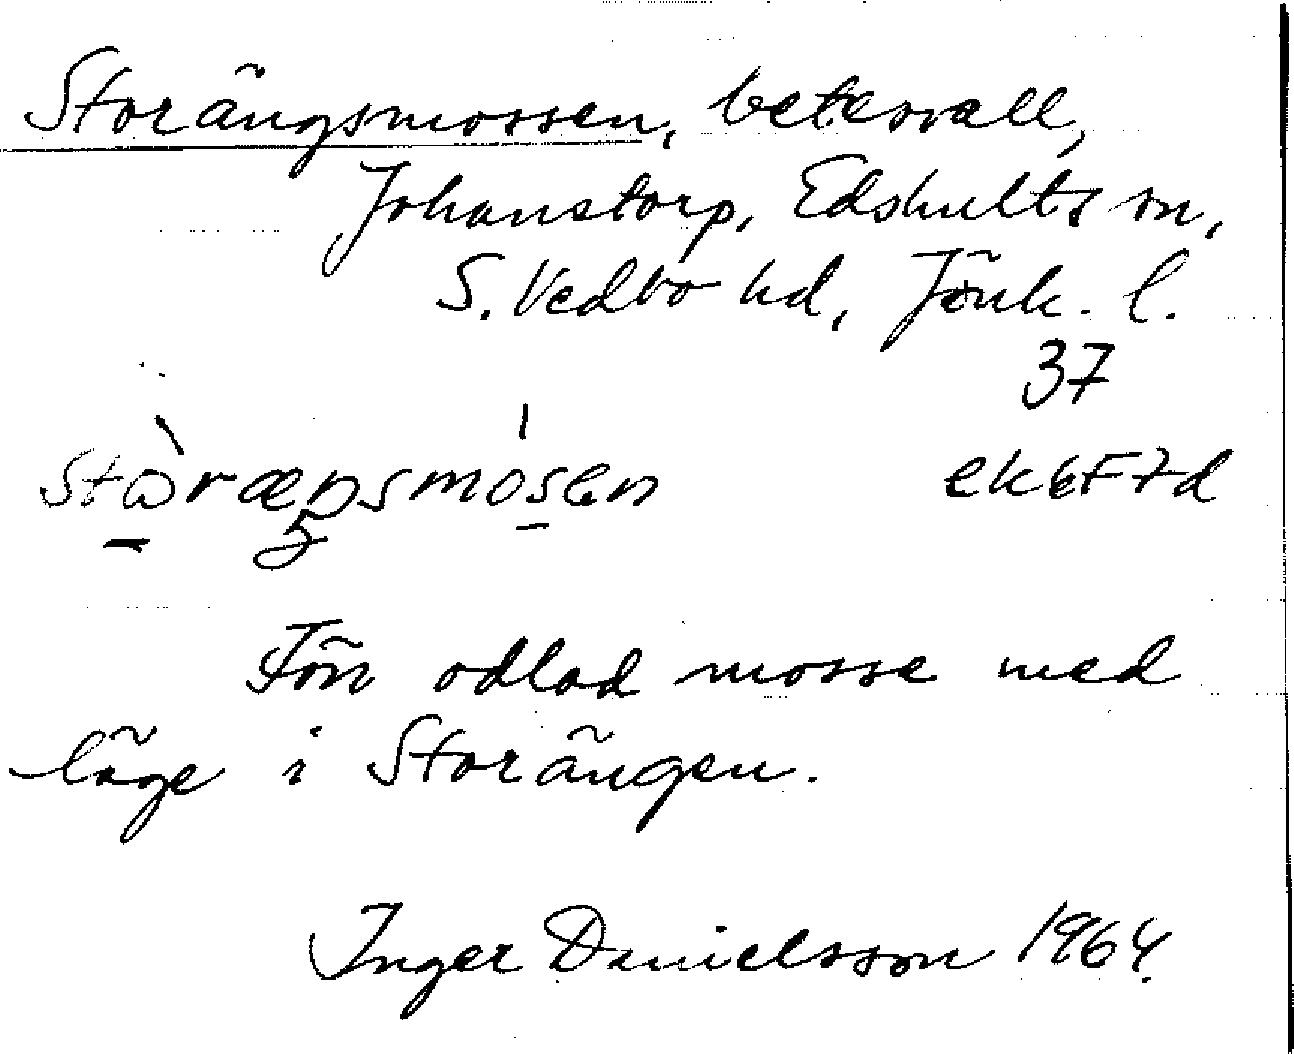 Storängsmossen, betesvall,
Johanstorp, Edshults sn,
S. Vedbo hd, Jönk. l.
37
ek 6F7d
Förr odlad mosse med
läge i Storängen.
Inger Danielsson 1964